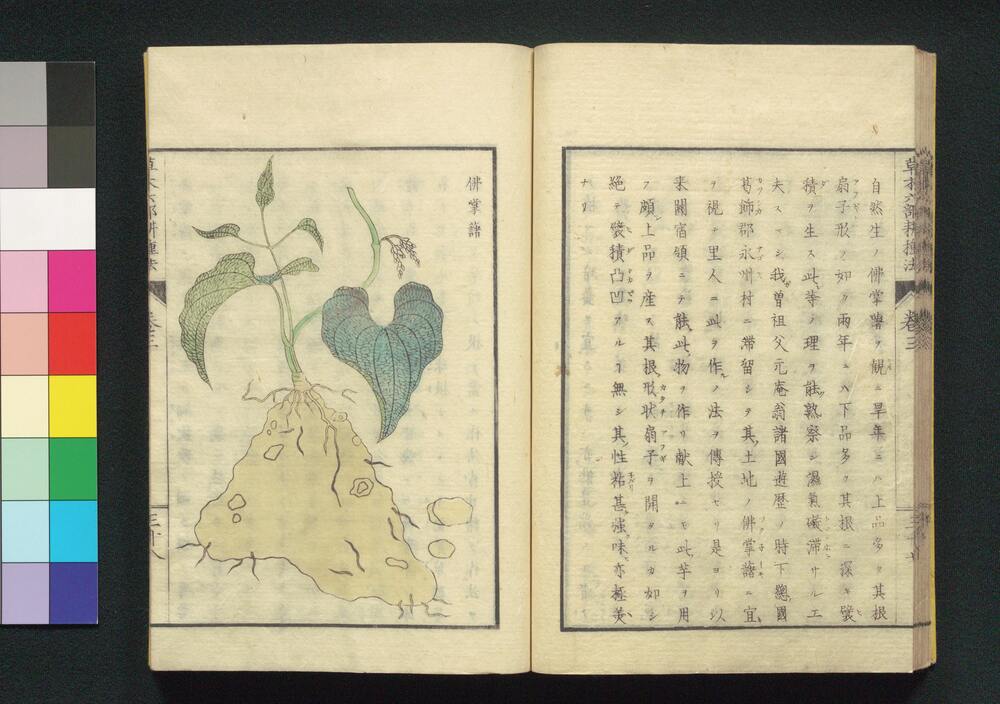 草木六部耕種法 卷三
自然生ノ佛掌薯ヲ観ニ旱年ニハ上品多ク其根
扇子形ノ如ク雨年ニハ下品多ク其根ニ深キ襞
積ヲ生ス此等ノ理ヲ能熟察シ濕氣礙滞サル工
夫スヘシ我曽祖父元庵翁諸國遊歴ノ時下總國
葛飾郡永州村ニ滞留シテ其土地ノ佛掌藷ニ宜
ヲ視テ里人ニ此ヲ作ノ法ヲ傳授セリ是ヨリ以
来關宿領ニテ能此物ヲ作リ献上ニモ此芋ヲ用
フ頗上品ヲ産ス其根形状扇子ヲ開タルカ如シ
絶テ襞積凸凹アルヿ無シ其性粘甚強味亦極美
ナリ
佛掌藷
草木六部耕種法 卷三
三十八